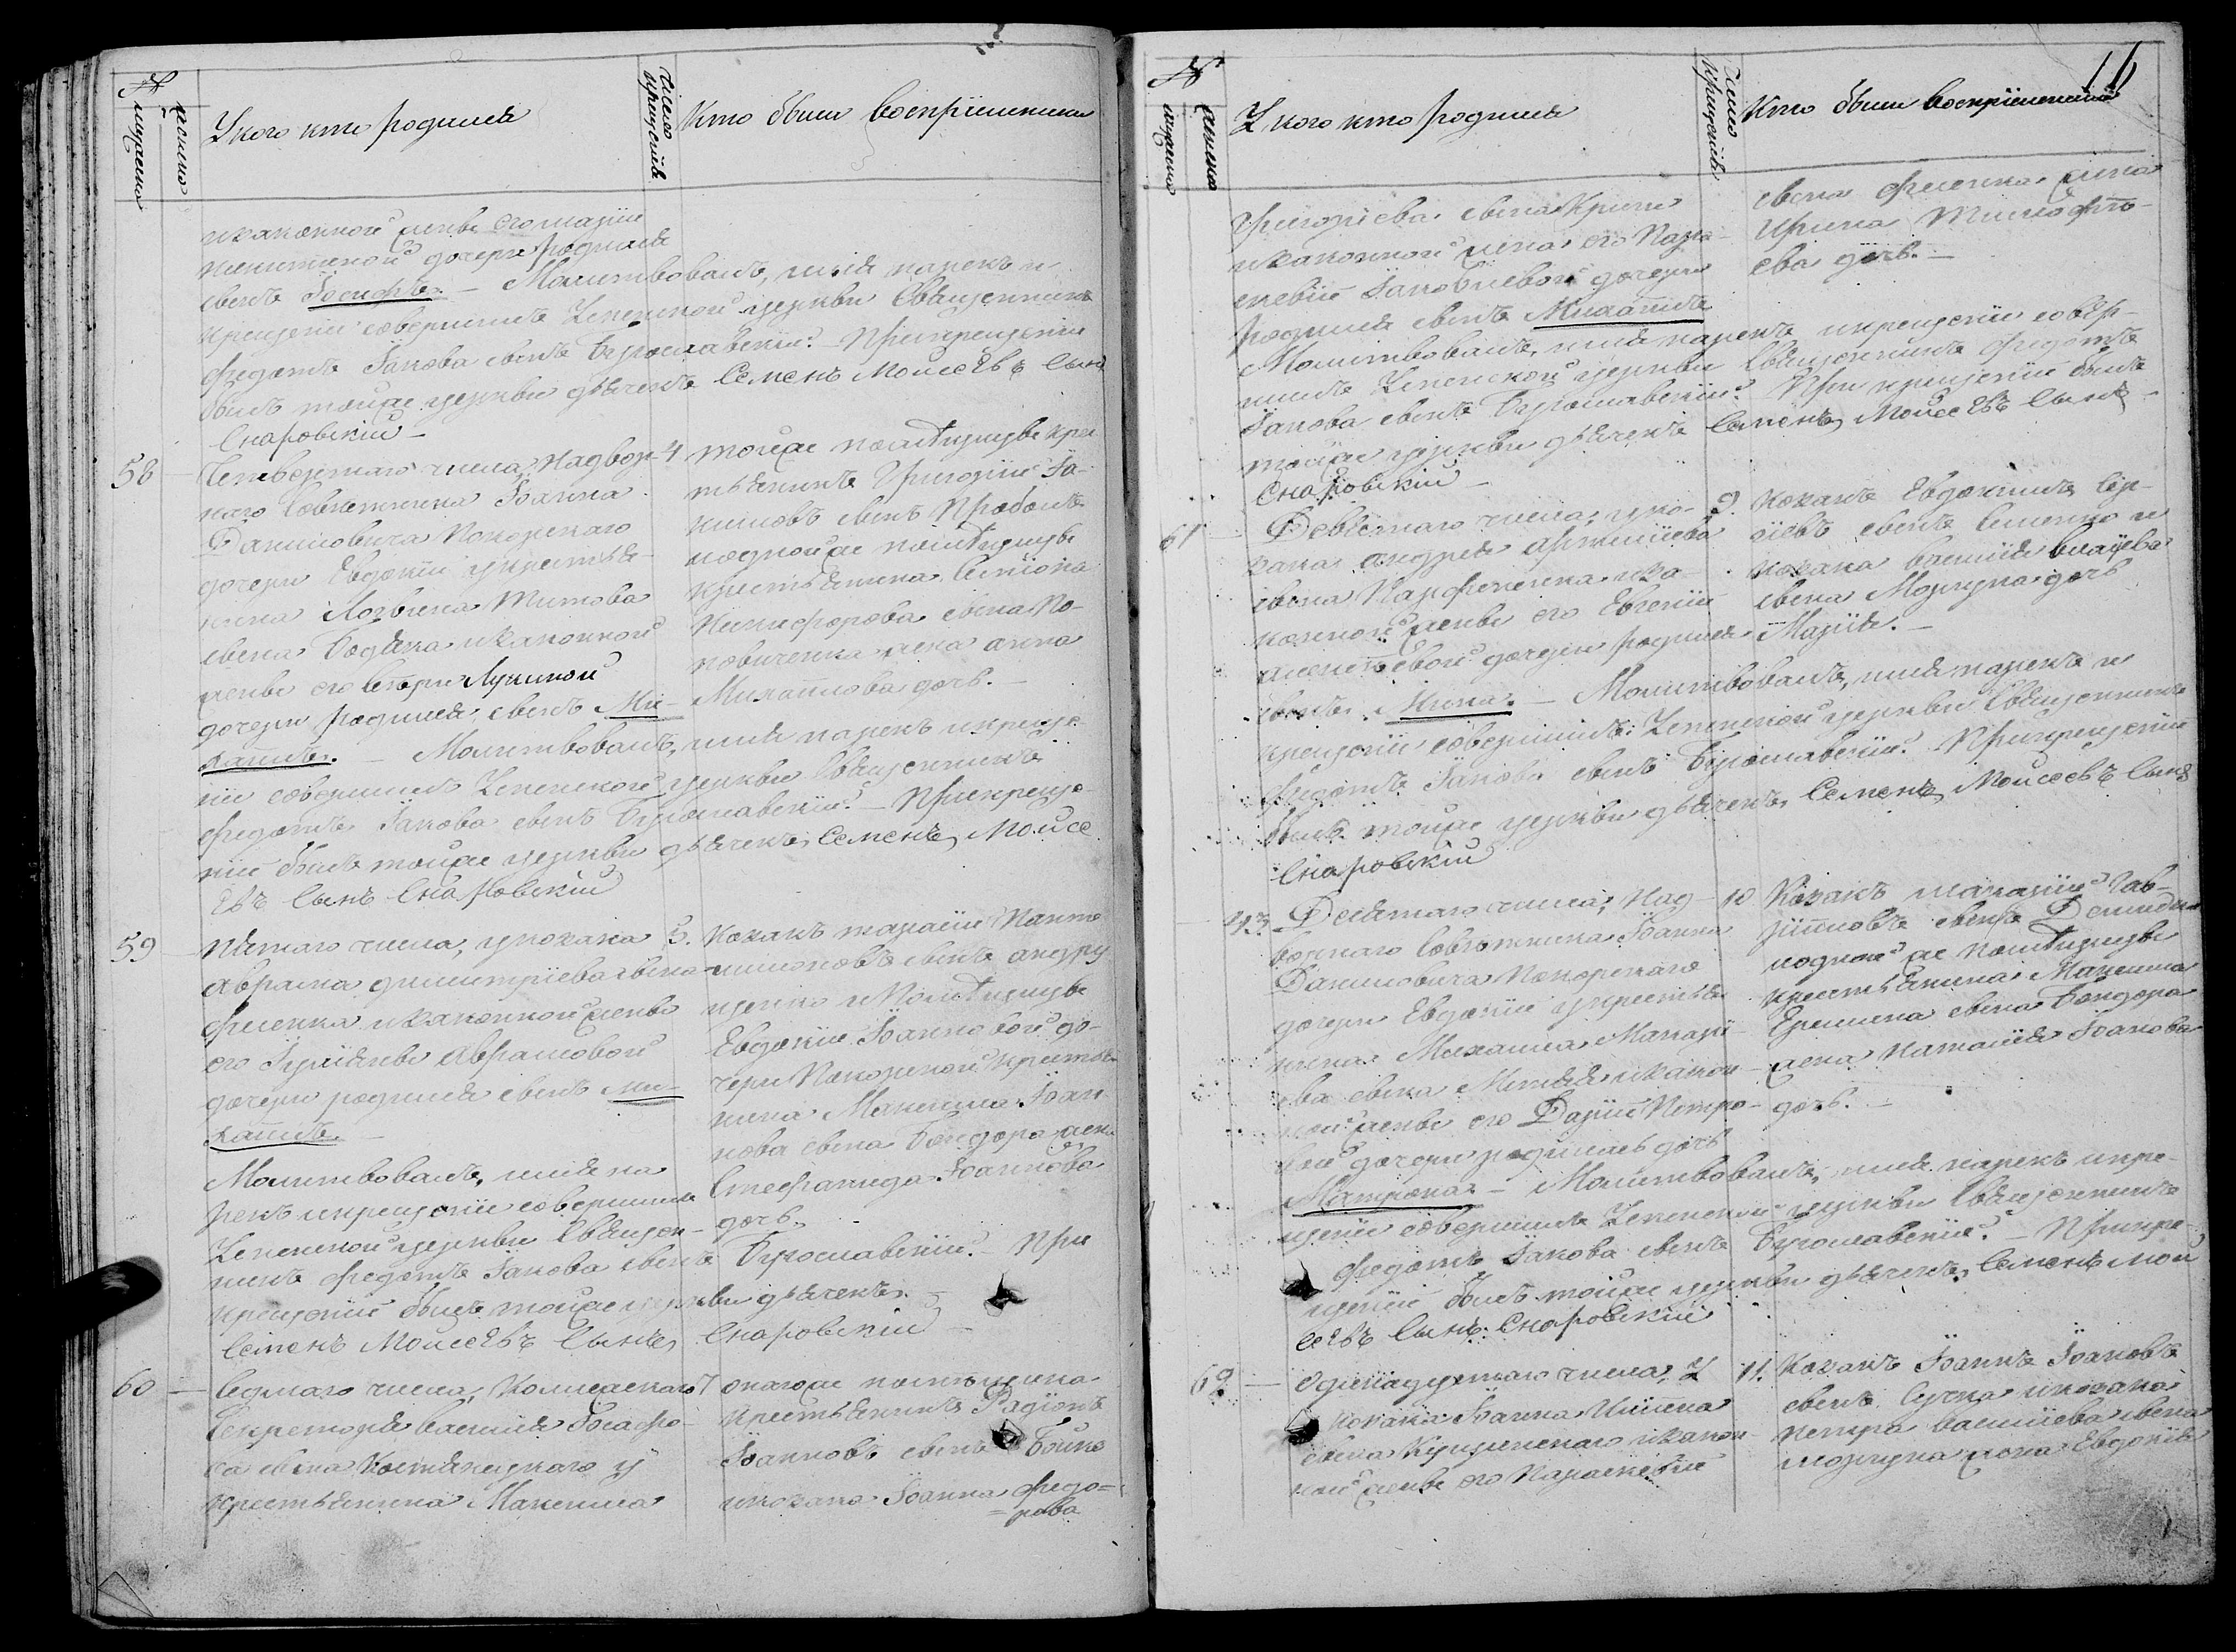 №
мужеска
женска
У кого кто родился
Число крещенія
Кто были воспріемники
и законной жены его Маріи
Никитиной дочери родился
сынъ Іосифъ. — Молитвовалъ, имя нарекъ и
крещеніе совершилъ Успенской церкви Священникъ
Федотъ Іакова сынъ Бугославскій. — При крещеніи
былъ тойже церкви дьячекъ Семенъ Моисеѣвъ Сынъ
Снаровскій —
58 — Четвертаго числа, Надвор-
наго Совѣтника Іоанна
Даниловича Покорскаго
дочери Евдокіи у крестья-
нина Логвина Титова
сына Бодяка и законной
жены его Лукиной
дочери родился сынъ Ми-
хаилъ. — Молитвовалъ, имя нарекъ и креще-
ніе совершилъ Успенской церкви Священникъ
Федотъ Іакова сынъ Бугославскій. — При креще-
ніи былъ тойже церкви дьячекъ Семенъ Моисе
ѣвъ Сынъ Снаровскій
4 тойже помѣщицы крес
тьянинъ Григорій Іа-
кимовъ сынъ
и одной же помѣщицы
крестьянина Семіона
Никифорова сына По-
повиченка жена Анна
Михайлова дочь. —
59 — Пятаго числа, у козака
Аврама Димитріева сына
Фисенка и законной жены
его Іуліяны Аврамовой
дочери родился сынъ Ми-
хаилъ. —
Молитвовалъ, имя на
рекъ и крещеніе совершилъ
Успенской церкви Священ-
никъ Федотъ Іакова сынъ Бугославскій. — При
крещеніи былъ тойже церкви дьячекъ
Семенъ Моисеѣвъ Сынъ Снаровскій —
5. Козакъ Тарасій Панте
лимоновъ сынъ Андру
щенко и Помѣщицы
Евдокіи Іоанновой до-
чери Покорской крестья
нина Максима Іоан-
нова сына Бондаря жена
Стефанида Іоаннова
дочь.
60 — Седмаго числа, Колежскаго
Секретаря Василія Іоасафо-
ва сына у
крестьянина Максима
7 онагоже помѣщика
крестьянинъ Радіонъ
Іоанновъ сынъ Бойко
и козака Іоанна Федо=
=рова
16
№
мужеска
женска
У кого кто родился
Число крещенія
Кто были воспріемники
Григоріева сына
и законной жены его Парас-
кевіи Іаковлевой дочери
родился сынъ Михаилъ
Молитвовалъ, имя нарекъ и крещеніе совер-
шилъ Успенской церкви Священникъ Федотъ
Іакова сынъ Бугославскій. При крещеніи былъ
тойже церкви дьячекъ Семенъ Моисеѣвъ Сынъ —
Снаровскій —
сына Фисенка жена
Ирина Тимофѣ-
ева дочь. —
61 — Девятаго числа, у ко-
зака Андрея Артеміева
сына Парфененка и за-
конной жены его Евгеніи
Алексѣевой дочери родился
сынъ Мина. — Молитвовалъ, имя нарекъ и
крещеніе совершилъ Успенской церкви Священникъ
Федотъ Іакова сынъ Бугославскій. При крещеніи
былъ тойже церкви дьячекъ Семенъ Моисеевъ Сынъ
Снаровскій
9. Козакъ Евдокимъ Сер-
гіевъ сынъ Семенко и
козака Василія Власіева
сына Моргуна дочь
Марія. —
43 Десятаго числа, Над-
ворнаго Совѣтника Іоанна
Даниловича Покорскаго
дочери Евдокіи у крестья
нина Михаила Макарі-
ева сына и закон-
ной жены его Даріи Петро-
вой дочери родилась дочь
Матрона. — Молитвовалъ, имя нарекъ и кре-
щеніе совершилъ Успенской церкви Священникъ
Федотъ Іакова сынъ Бугославскій. — При кре-
щеніи былъ тойже церкви дьячекъ Семенъ Мои
сеѣвъ Сынъ Снаровскій
10 Козакъ Гав-
рииловъ сынъ
и одной же помѣщицы
крестьянина Максима
Еремина сына Бондаря
жена Наталія Іоаннова
дочь. —
62 — Одинадцатаго числа, У
козака Іоанна
сына и закон-
ной жены его Параскевіи
11. Козакъ Іоаннъ Іоанновъ
сынъ и козака
Петра Василіева сына
Моргуна жена Евдокія